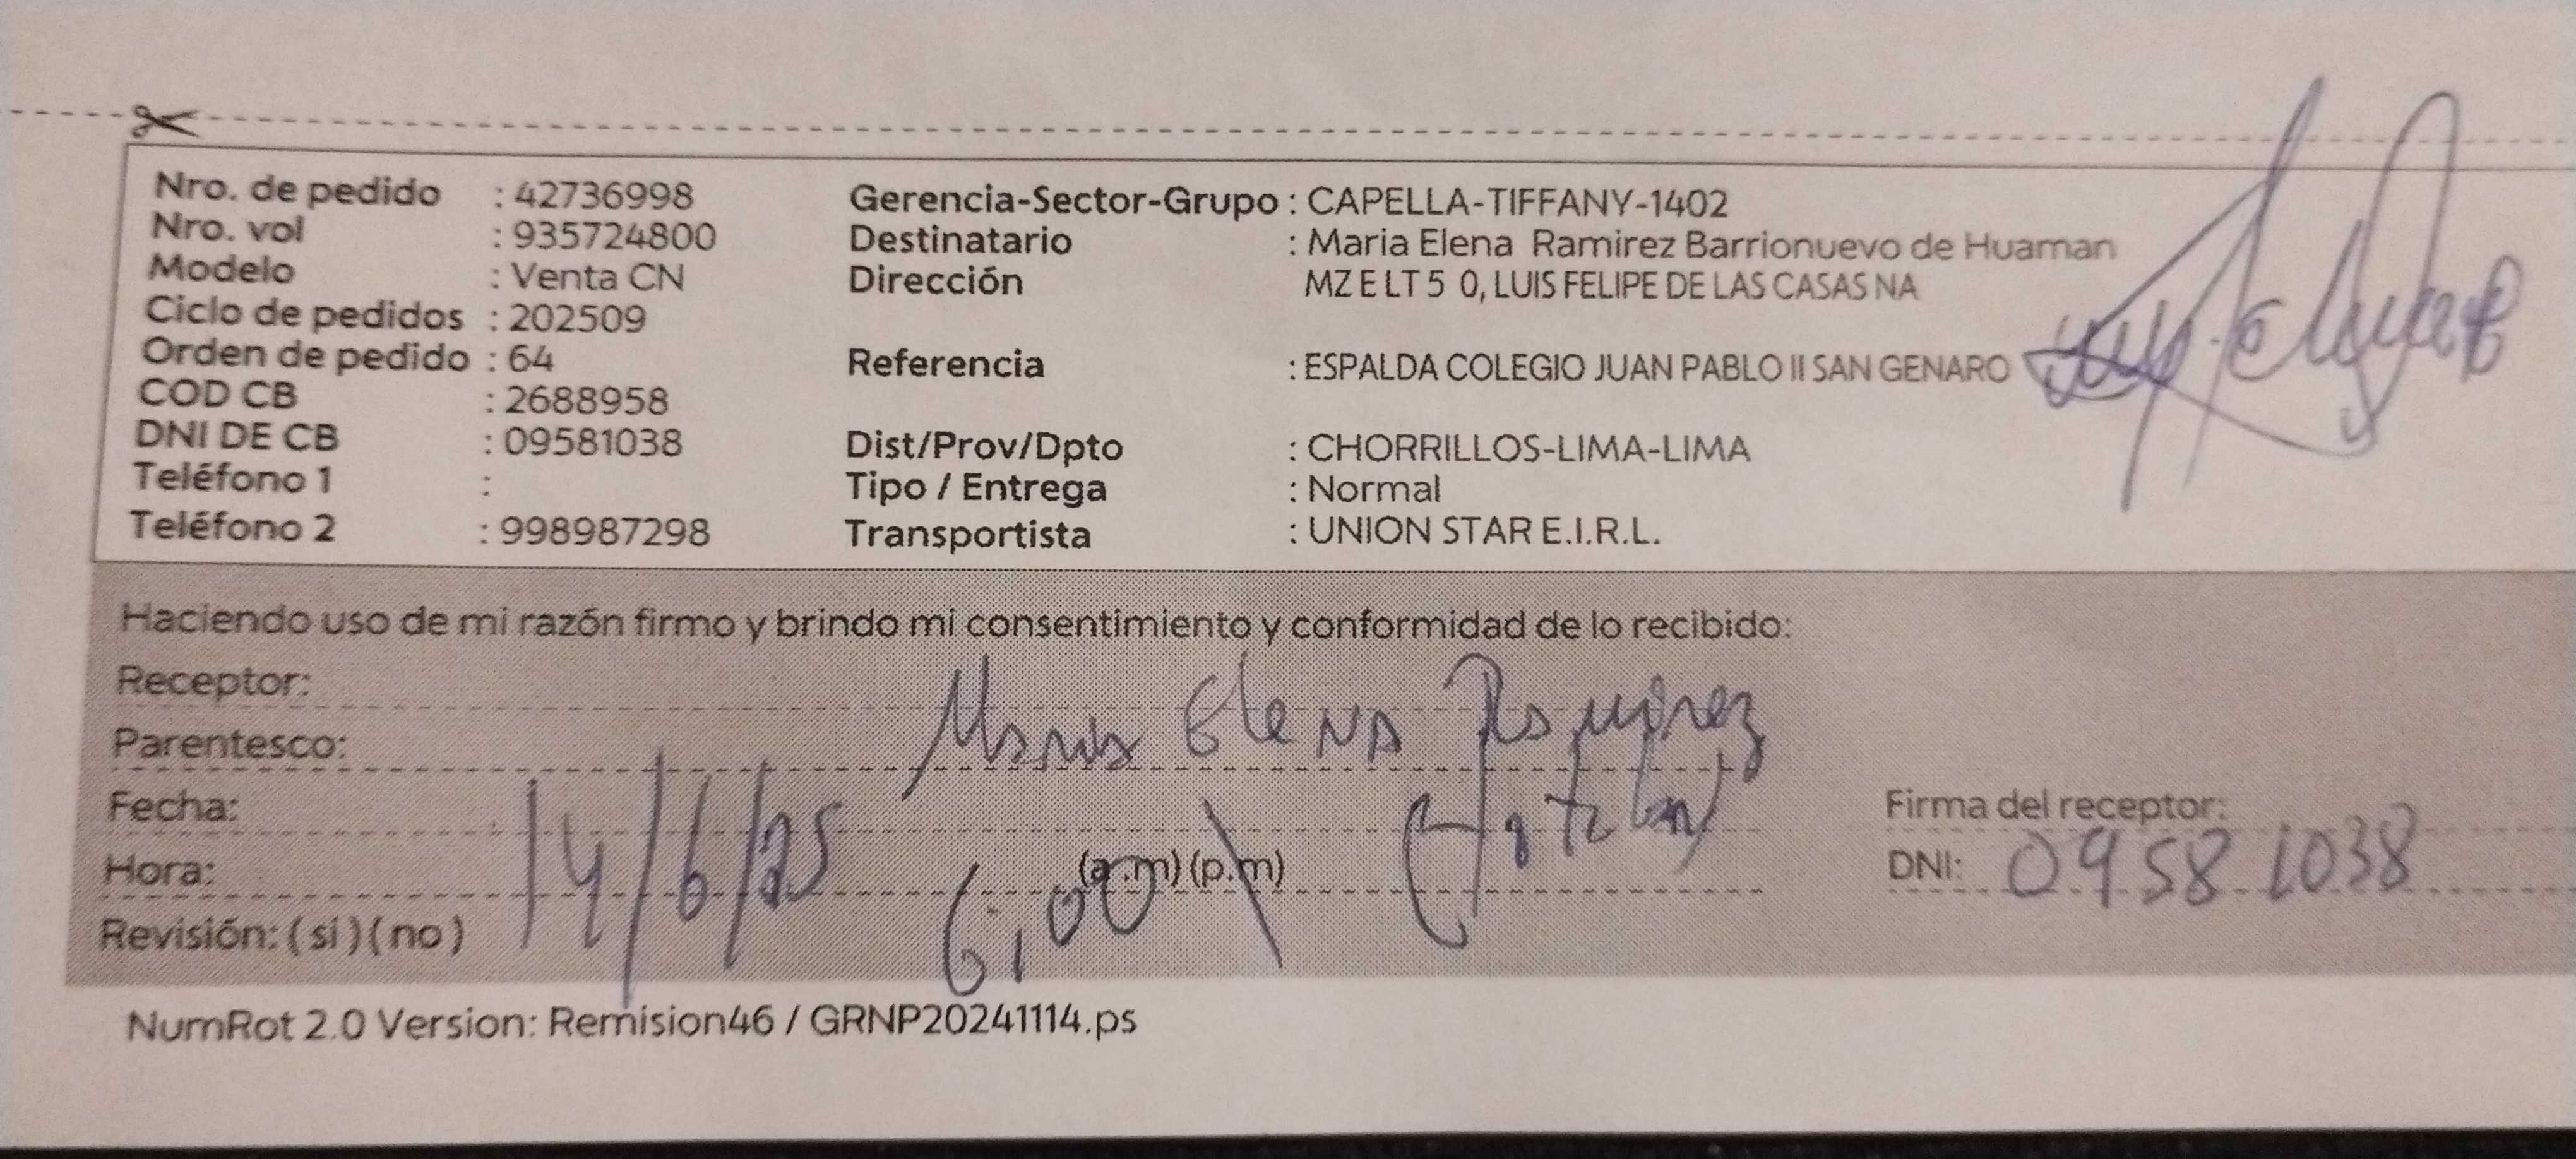 Nro. de pedido : 42736998
Nro. vol : 935724800
Modelo : Venta CN
Ciclo de pedidos : 202509
Orden de pedido : 64
COD CB : 2688958
DNI DE CB : 09581038
Teléfono 1 :
Teléfono 2 : 998987298
Gerencia-Sector-Grupo : CAPELLA-TIFFANY-1402
Destinatario : Maria Elena Ramirez Barrionuevo de Huaman
Dirección MZ E LT 5 0, LUIS FELIPE DE LAS CASAS NA
Referencia : ESPALDA COLEGIO JUAN PABLO II SAN GENARO
Dist/Prov/Dpto : CHORRILLOS-LIMA-LIMA
Tipo / Entrega : Normal
Transportista : UNION STAR E.I.R.L.
Haciendo uso de mi razón firmo y brindo mi consentimiento y conformidad de lo recibido:
Receptor: Maria Elena Ramirez
Parentesco:
Fecha: 14/6/25
Hora: 6,00 (a.m) (p.m)
Revisión: ( si ) ( no )
Firma del receptor:
DNI: 09581038
NumRot 2.0 Version: Remision46 / GRNP20241114.ps